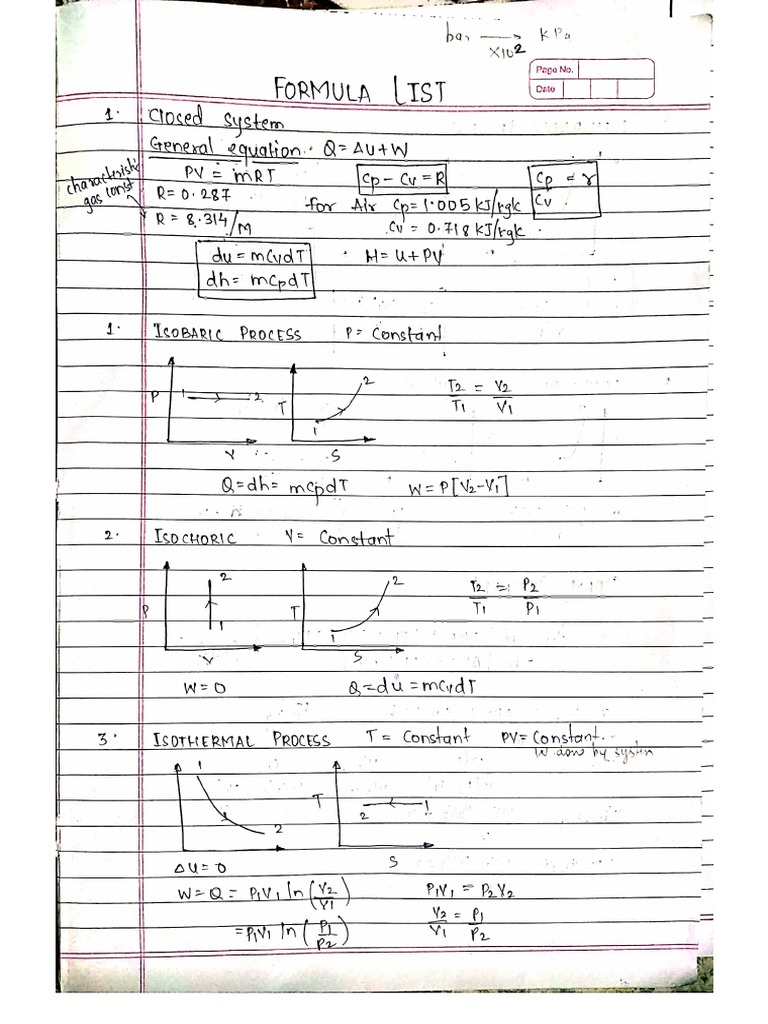 bar → kPa
×10²
Page No.
Date
FORMULA LIST
1. Closed system
General equation. Q = ΔU + W
PV = mRT
Cp - Cv = R
Cp = γ
Cv
characteristic gas const
R = 0.287
for Air Cp = 1.005 KJ/kgk
R = 8.314/M
Cv = 0.718 KJ/kgk
du = mCvdT
H = U + PV
dh = mCpdT
1. ISOBARIC PROCESS P = Constant
P 1 2
T 1 2
T2/T1 = V2/V1
V
S
Q = dh = mCpdT W = P[V2-V1]
2. ISOCHORIC V = Constant
P 1 2
T 1 2
T2/T1 = P2/P1
V
S
W = 0 Q = du = mCvdT
3. ISOTHERMAL PROCESS T = Constant PV = Constant.
W done by system
1 2
T 2 1
S
ΔU = 0
W = Q = P1V1 ln(V2/V1) P1V1 = P2V2
= P1V1 ln(P1/P2) V2/V1 = P1/P2